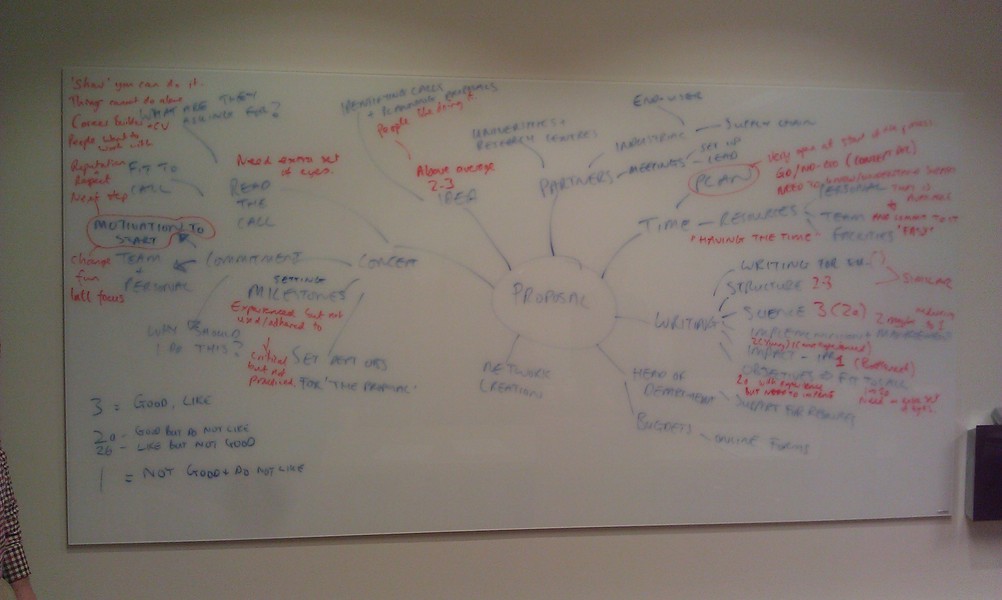 'Show' you can do it.
Things cannot do alone
Career builder + CV
People want to
work with
Reputation
+
Repeat
Next step
MOTIVATION TO
START
change
fun
fall focus
WHAT ARE THEY
ASKING FOR?
FIT TO
CALL
Need extra set
of eyes.
READ
THE
CALL
TEAM
+
PERSONAL
COMMITMENT
CONCEPT
WHY SHOULD
I DO THIS?
SETTING
MILESTONES
Experienced but not
used/adhered to
critical
but not
practiced.
SET DEPT OBJ
FOR 'THE PROPOSAL'
IDENTIFYING CALLS
+ PLANNING PROPOSALS
People like doing it.
Above average
2-3
IDEA
PROPOSAL
NETWORK
CREATION
UNIVERSITIES +
RESEARCH CENTRES
PARTNERS
INDUSTRIAL
END USER
SUPPLY CHAIN
MEETINGS
SET UP
LEAD
PLAN
Very good at start of the process.
GO/NO-GO (CONCEPT ETC)
TIME
RESOURCES
PERSONAL
TEAM
FACILITIES
THAT IS
AVAILABLE
"HAVING THE TIME"
WRITING
WRITING FOR
STRUCTURE 2-3
SIMILAR
SCIENCE 3 (2a)
2 margin to 1
IMPLEMENTATION + MANAGEMENT
IMPACT - IPR 1 (Outsourced)
OBJECTIVES TO FIT TO CALL
HEAD OF
DEPARTMENT
2a with experience
but need to
SUPPORT FOR
BUDGETS
ONLINE FORMS
3 = GOOD, LIKE
2a - GOOD BUT DO NOT LIKE
2b - LIKE BUT NOT GOOD
1 = NOT GOOD + DO NOT LIKE